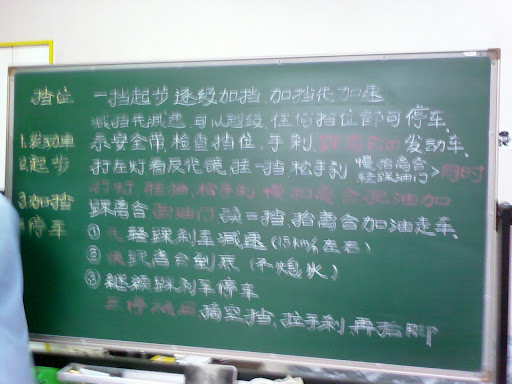 挡位 一挡起步 逐级加挡、加挡先加速
减挡先减速、可以越级、任何挡位都可停车、
1.发动车 系安全带、检查挡位、手刹、踩离合 发动车、
2.起步 打左灯看反光镜、挂一挡 松手刹 慢抬离合 轻踩油门 同时
打灯、挂油、松手刹 慢 离合 油 加
3.加挡 踩离合 油门 二挡、抬离合加油走车、
停车 ① 轻踩刹车减速(15km/h左右)
② 踩离合到底(不熄火)
③ 继续踩刹车停车
摘空挡、拉手刹、再抬脚